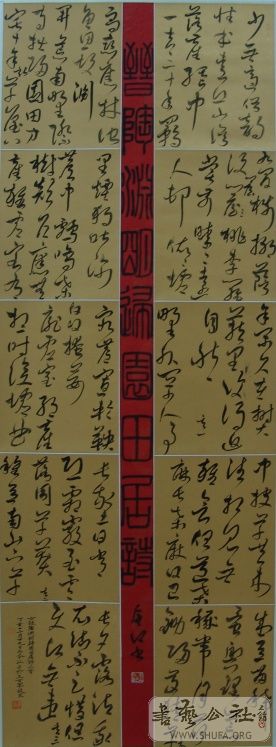 晉陶淵明歸園田居詩
少無適俗韻
性本愛丘山誤
落塵網中
一去三十年羈
鳥戀舊林池
魚思故淵
開荒南野際
守拙歸園田方
宅十餘畝草屋八
九間榆柳蔭後
簷桃李羅
堂前曖曖遠
人村依依墟
里煙狗吠深
巷中雞鳴桑
樹顛戶庭無
塵雜虛室有
餘閒久在樊
籠裏復得返
自然其一
野外罕人事
窮巷寡輪鞅
白日掩荊
扉虛室絕塵
想時復墟曲
中披草共來
往相見無
雜言但道桑
麻長桑麻日已
長我土日已廣
常恐霜霰至零
落同草莽其二
種豆南山下草
盛豆苗稀
晨興理荒
穢帶月荷
鋤歸道狹草
木長夕露沾我衣
衣沾不足惜
但使願無違其三
書藝公社
WWW.SHUFA.ORG